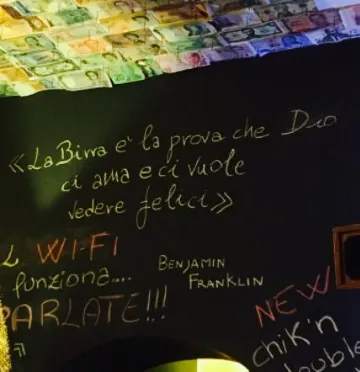 «La Birra e' la prova che Dio
ci ama e ci vuole
vedere felici»
BENJAMIN
FRANKLIN
L WI-FI
funziona....
PARLATE!!!
NEW
chik'n
double